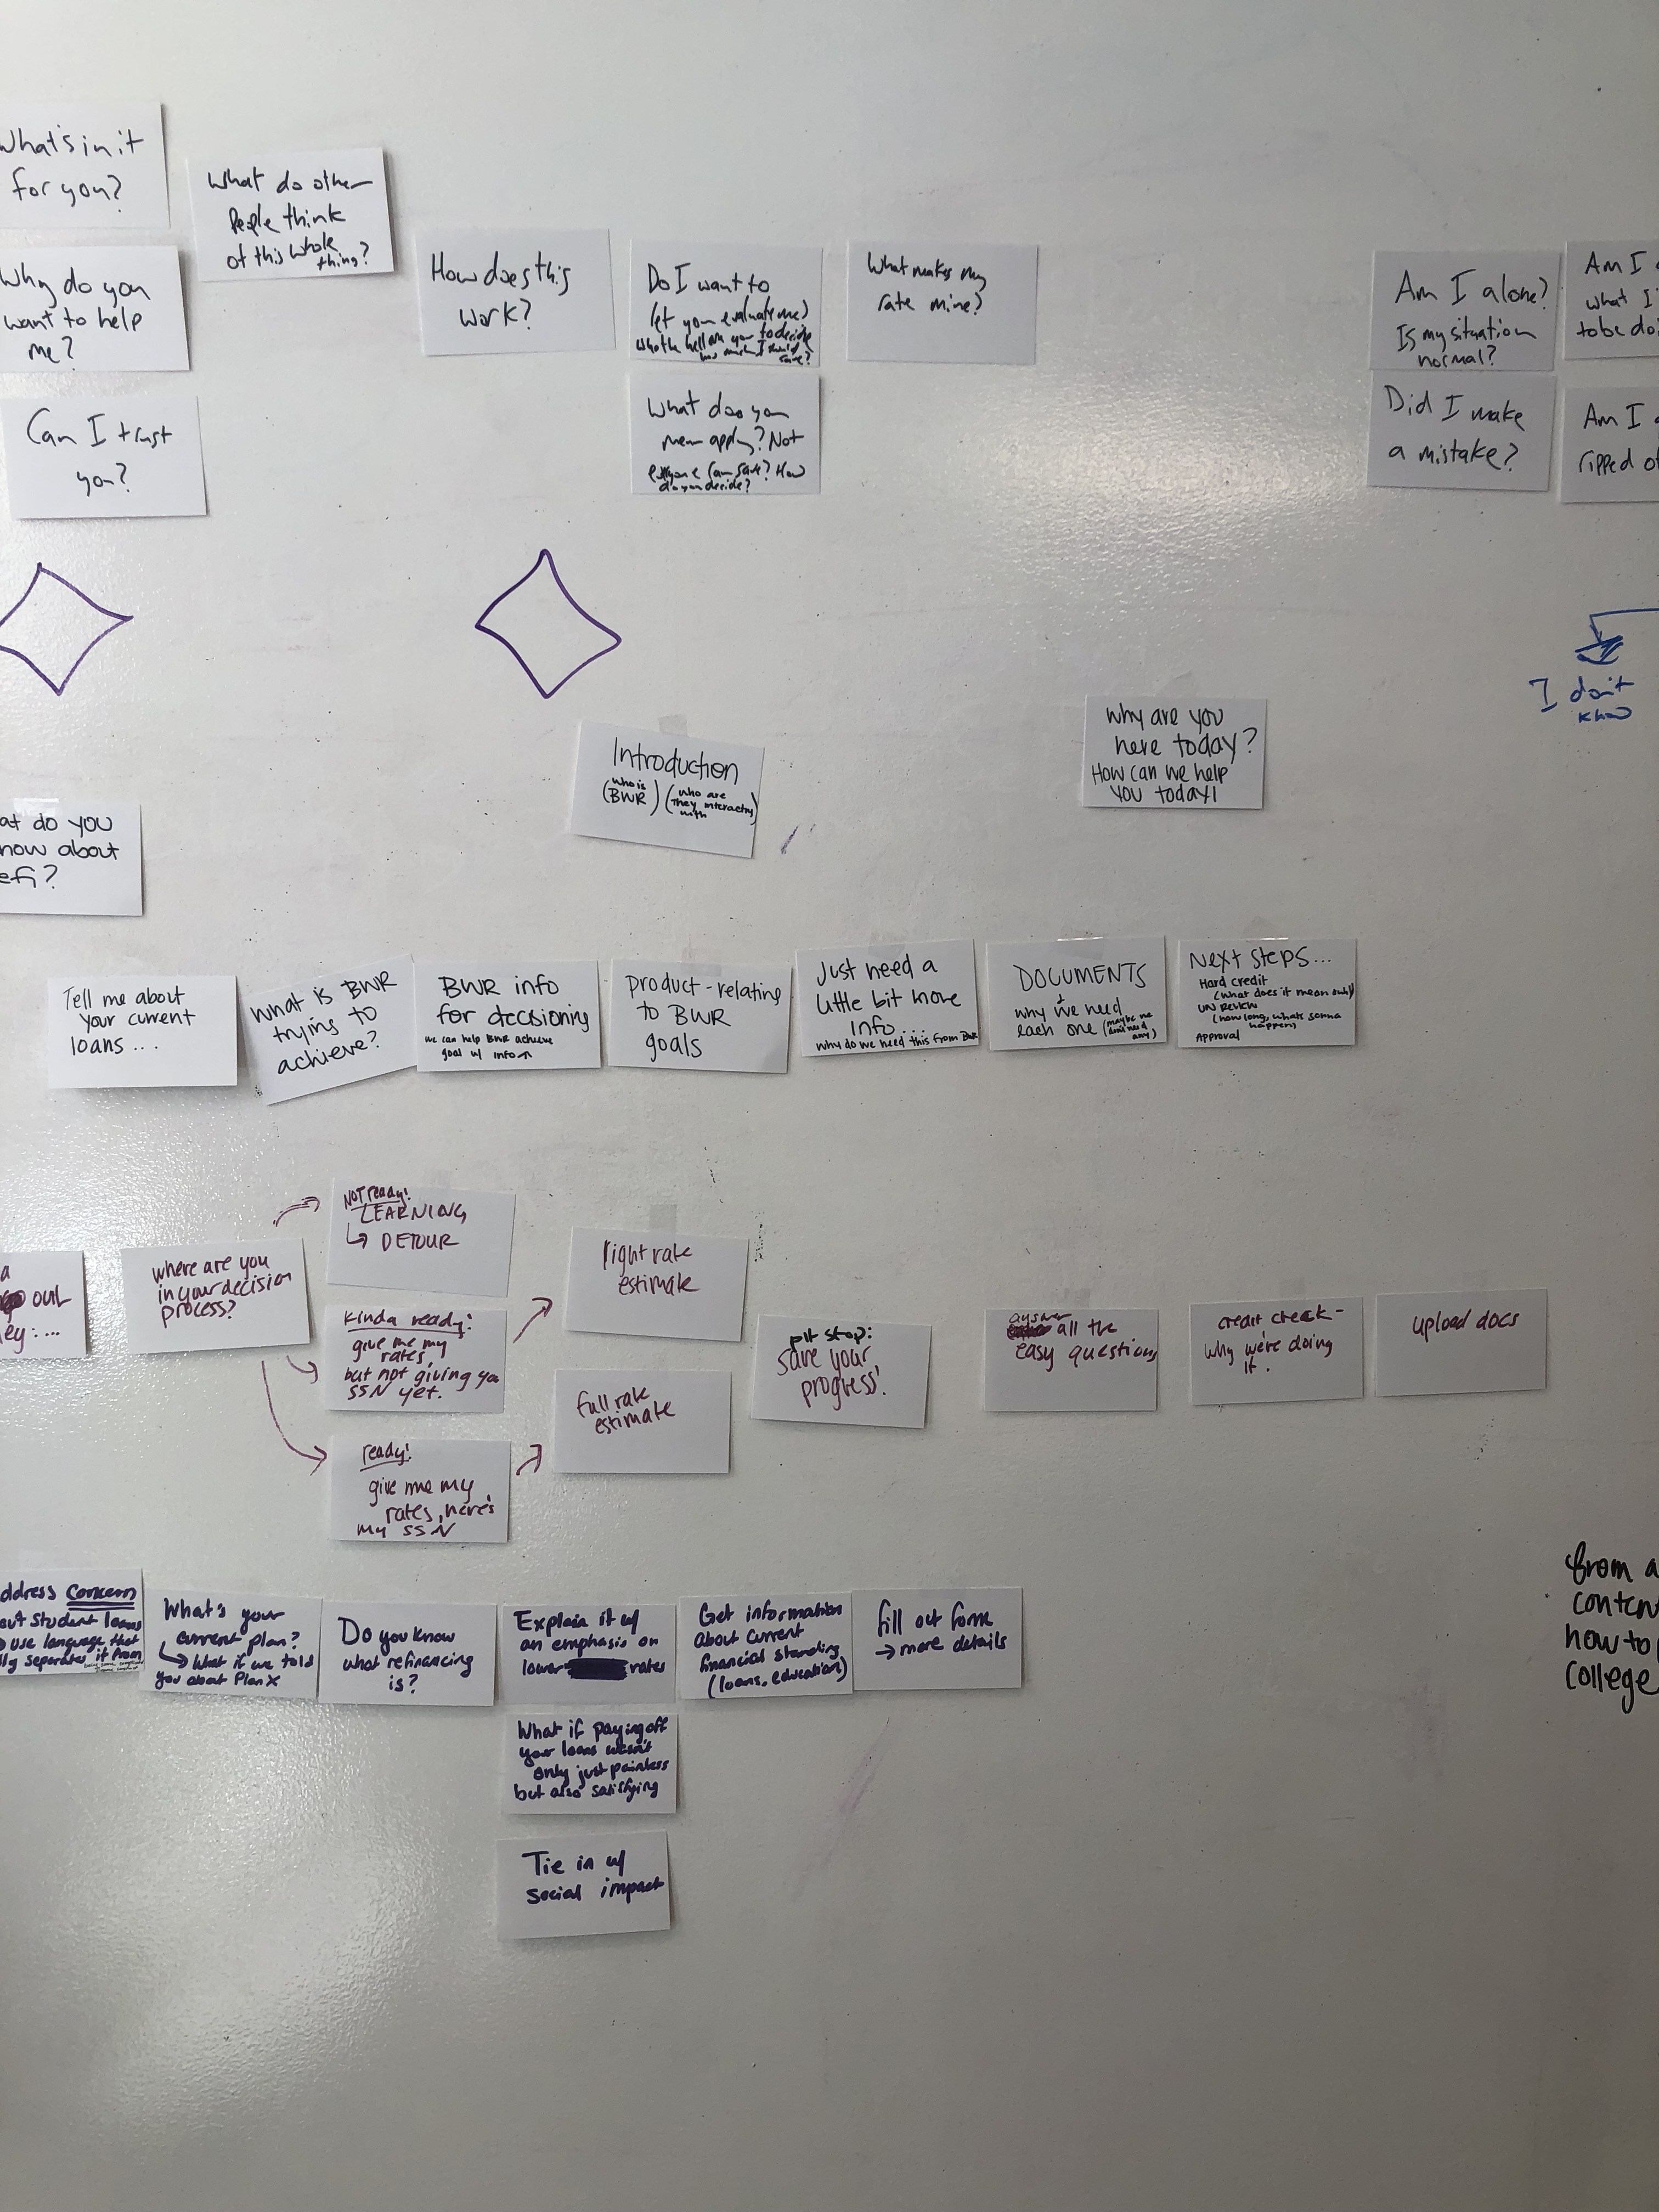 What's in it
for you?
What do other
People think
of this whole
thing?
Why do you
want to help
me?
How does this
work?
Do I want to
let you evaluate me?
who the hell are you to decide
how much I should
save?
What makes my
rate mine?
Am I alone?
Is my situation
normal?
Am I
what I
to be
Can I trust
you?
What do you
mean apply? Not
everyone can save? How
do you decide?
Did I make
a mistake?
Am I
ripped
I don't
know
Introduction
(who is
BWR) (who are
they interacting
with)
Why are you
here today?
How can we help
you today!
do you
about
Tell me about
your current
loans...
What is BWR
trying to
achieve?
BWR info
for decisioning
we can help BWR achieve
goal w/ info
product-relating
to BWR
goals
Just need a
little bit more
info....
why do we need this from BWR
DOCUMENTS
why we need
each one (maybe we
don't need
any)
Next steps...
Hard credit
(what does it mean
UW Review
(how long, whats gonna
happen)
Approval
out
where are you
in your decision
process?
NOT ready!
LEARNING
↳ DETOUR
kinda ready:
give me my
rates,
but not giving you
SSN yet.
ready!
give me my
rates, here's
my SSN
light rate
estimate
full rate
estimate
pit stop:
save your
progress!
answer
all the
easy questions
credit check -
why we're doing
it.
upload docs
Concern
student loans
use language that
separates it from
What's your
current plan?
↳ What if we told
you about Plan X
Do you know
what refinancing
is?
Explain it w/
an emphasis on
lower rates
Get information
about current
financial standing
(loans, education)
fill out form
→ more details
What if paying off
your loans wasn't
only just painless
but also satisfying
Tie in w/
social impact
from
how to
college